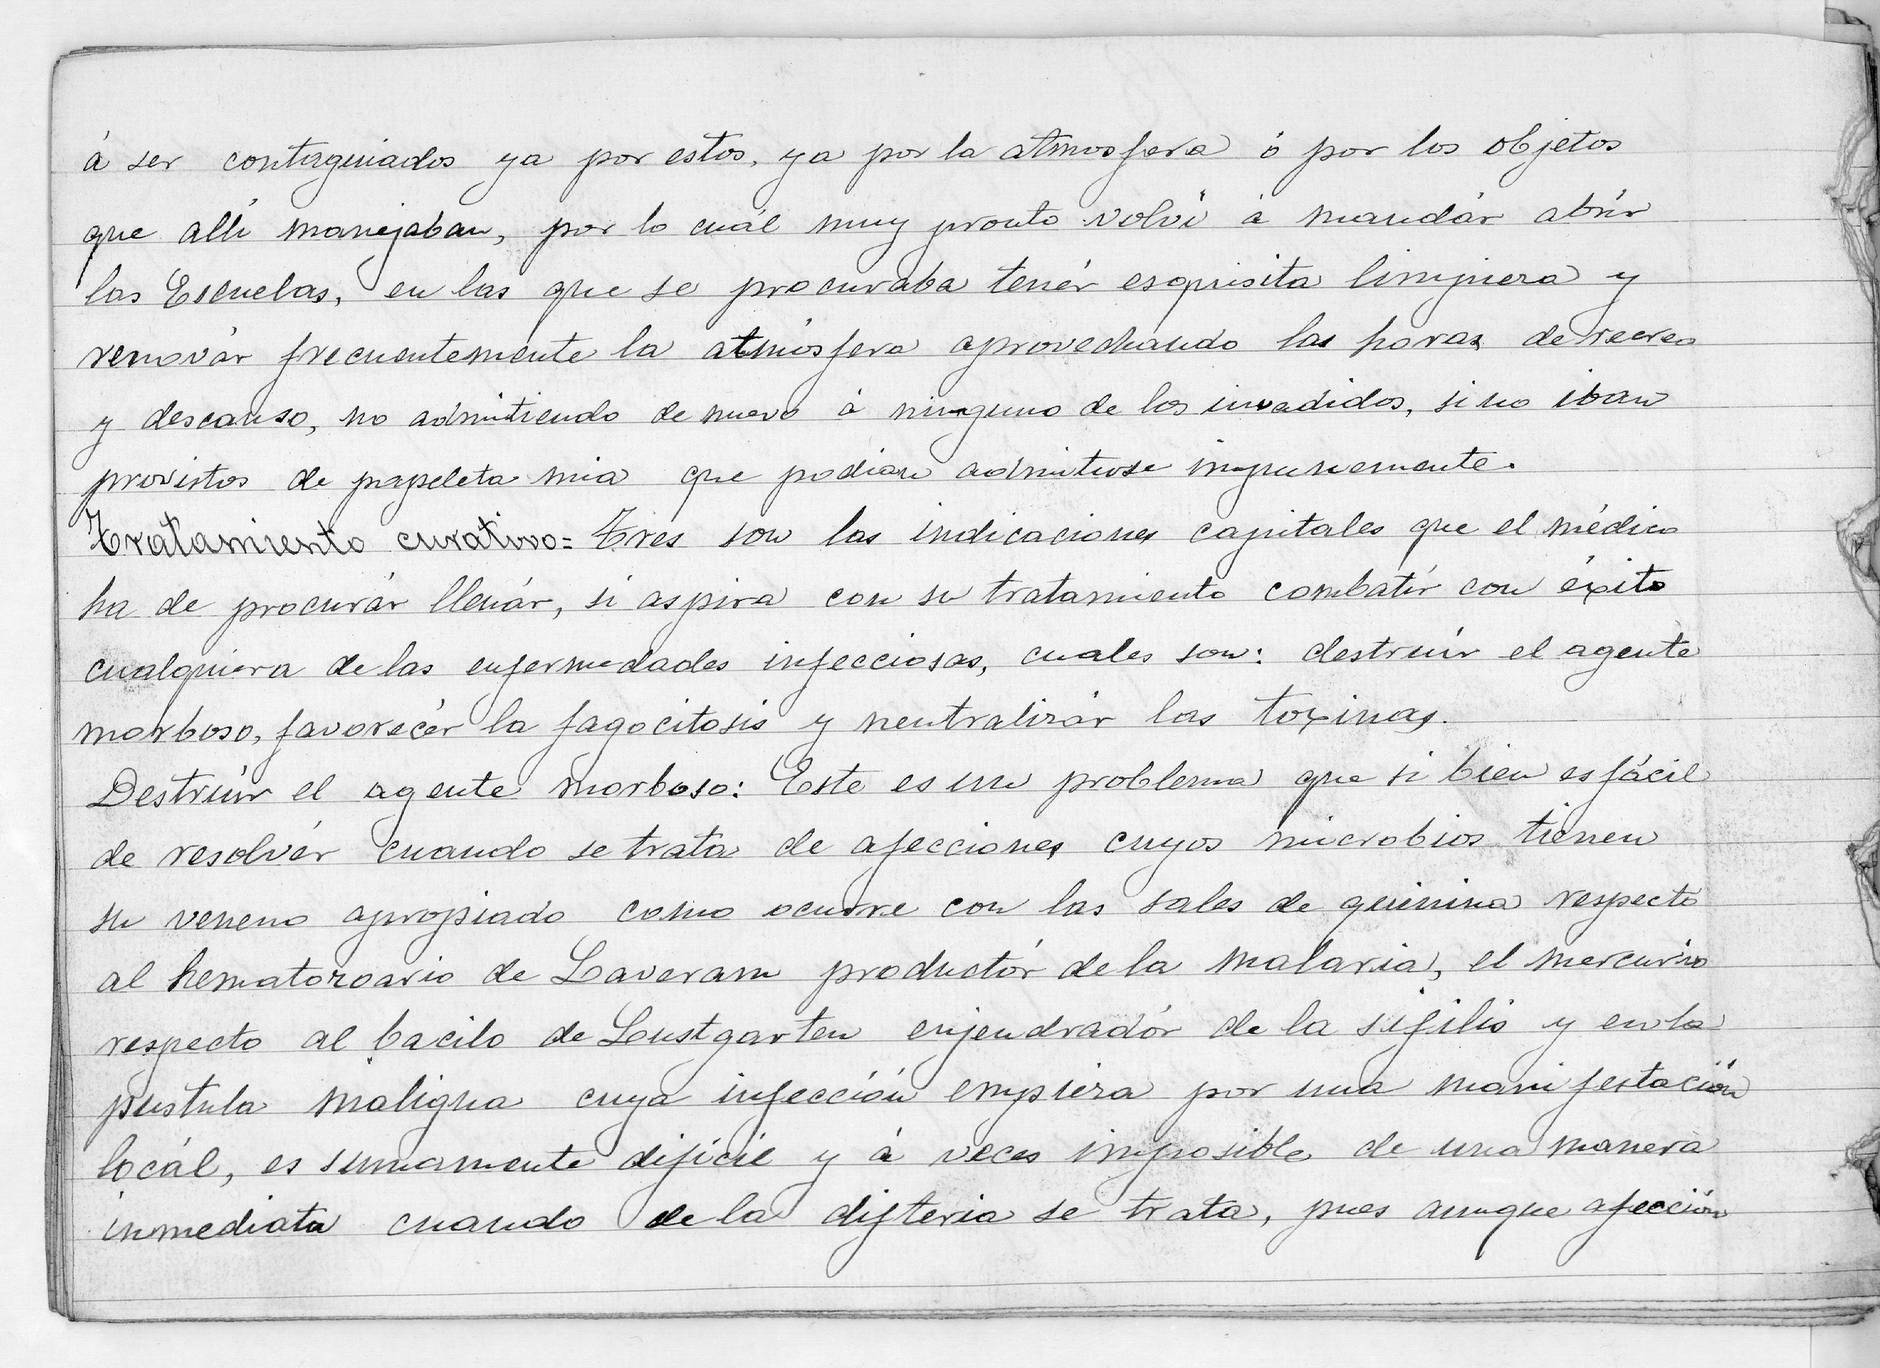 á ser contagiados ya por estos, ya por la atmosfera ó por los objetos
que allí manejaban, por lo cuál muy pronto volví á mandár abrír
las Escuelas, en las que se procuraba tenér esquisita limpieza y
renovár frecuentemente la atmósfera aprovechando las horas de recreo
y descanso, no admitiendo de nuevo á ninguno de los invadidos, si no iban
provistos de papeleta mia que podian admitirse impunemente.
Tratamiento curativo = Tres son las indicaciones capitales que el médico
ha de procurár llenár, si aspira con su tratamiento combatír con éxito
cualquiera de las enfermedades infecciosas, cuales son: destruír el agente
morboso, favorecér la fagocitosis y neutralizár las toxinas.
Destruír el agente morboso: Este es un problema que si bien es fácil
de resolvér cuando se trata de afecciones cuyos microbios tienen
su veneno apropiado como ocurre con las sales de quinina respecto
al hematozoario de Laveram productór de la malaria, el mercurio
respecto al bacilo de Lustgarten enjendradór de la sífilis y en la
pustula maligna cuya infección empieza por una manifestación
locál, es sumamente difícil y á veces imposible de una manera
inmediata cuando de la difteria se trata, pues aunque afección